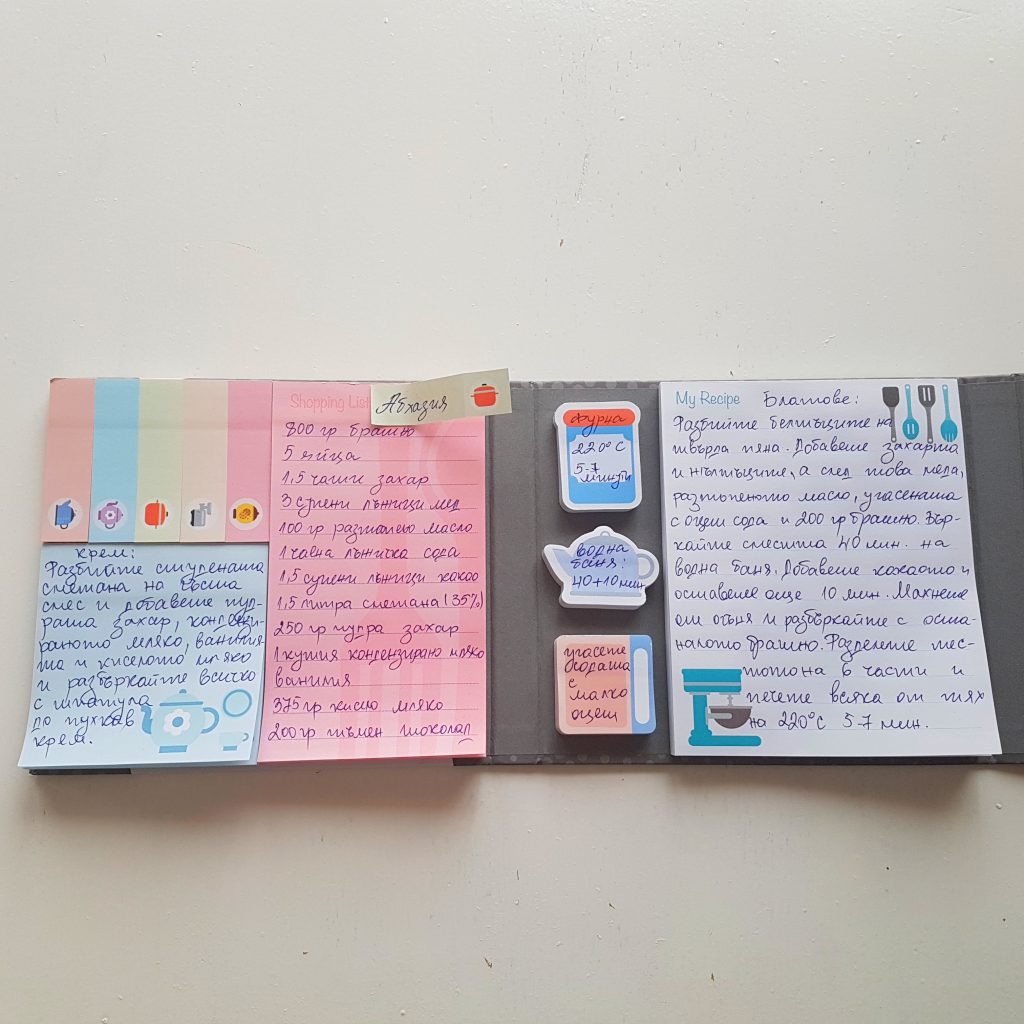 Shopping List
Абхазия
800 гр брашно
5 яйца
1,5 чаши захар
3 супени лъжици мед
100 гр разтопено масло
1 чаена лъжичка сода
1,5 супени лъжици какао
1,5 литра сметана (35%)
250 гр пудра захар
1 кутия кондензирано мляко
ванилия
375 гр кисело мляко
200 гр тъмен шоколад
крем:
Разбийте студената
сметана на гъста
смес и добавете пуд-
рата захар, кондензи-
раното мляко, ванилия-
та и киселото мляко
и разбъркайте всичко
с шпатула
до пухкав
крем.
фурна
220°C
5-7
минути
водна
баня:
40+10 мин
угасете
содата
с
малко
оцет
My Recipe Блатове:
Разбийте белтъците на
твърда пяна. Добавете захарта
и жълтъците, а след това меда,
разтопеното масло, угасената
с оцет сода и 200 гр брашно. Бър-
кайте сместта 40 мин. на
водна баня. Добавете какаото и
оставете още 10 мин. Махнете
от огъня и разбъркайте с оста-
налото брашно. Разделете тес-
тото на 8 части и
печете всяка от тях
на 220°C 5-7 мин.